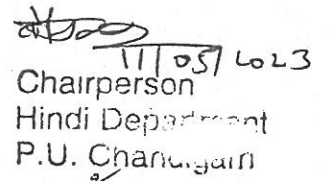 11/05/2023
Chairperson
Hindi Department
P.U. Chandigarh